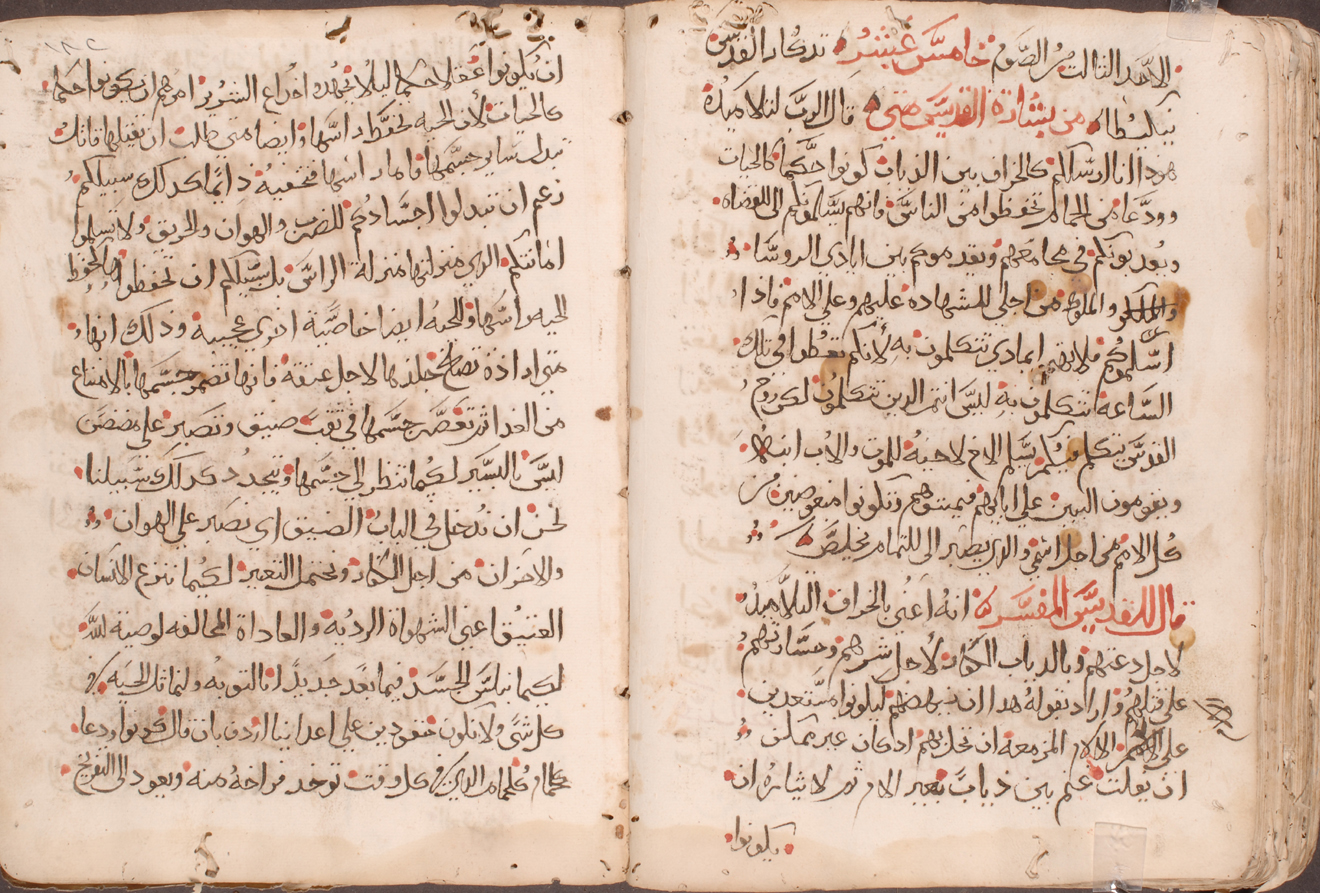 الاحد الثالث من الصوم خامس عشر تدكار القديس
نيكيطا من بشارة القديس متي قال الرب لتلاميده
هودا انا ارسلكم كالخراف بين الدياب كونوا حكما كالحيات
وودعا من الحمام تحفظوا من الناس فانهم يسلمونكم الى القضاه
ويعدبونكم في مجامعهم ويقدمونكم بين ايادى الروسا
والملوك من اجلي للشهاده عليهم وعلى الامم فادا
اسلموكم فلا تهتموا بمادى تتكلمون به لأنكم تعطوا في تلك
الساعة ما تتكلمون به ليس انتم الدين تتكلمون لكن روح
القدس يتكلم فيكم يسلم الاخ لاخيه للموت والاب ابنه
ويقومون البنين على ابايهم فيميتوهم وتكونوا مبغوضين من
كل الامم من اجل اسمي والدي يصبر الى التمام يخلص
قال القديس المفسر انه اعني بالخراف التلاميد
لاجل دعتهم وبالدياب الكفار لأجل شرهم وجسارتهم
على قتلهم واراد بقوله هدا ان ينهضهم ليكونوا مستعدين
على الالام المزمعه ان تحل بهم اد كان غير ممكن
ان يفلت غنم بين دياب بغير الام ثم لاشاره ان
يكونوا
١٨٢
ان يكونوا عقلا حكما ليلا تخدعهم خداع الشرير امرهم ان يكونوا حكما
كالحيات لأن الحيه تحفظ راسها وايضا متى طلبت ان تقتلها فانك
تبدل ساير جسمها فاما راسها فتخفيه دايما كدلك سبيلكم
زعم ان تبدلوا اجسادكم للضرب والهوان والحريق ولا تسلموا
امانتكم الدي منزلتها منزلة الراس بل سبيلكم ان تحفظوها كما تحفظ
الحيه راسها وللحيه ايضا خاصية اخرى عجيبة ودلك انها
متى ارادة تصلخ جلدها لاجل عتقه فانها تضمر جسمها بالامتناع
من الغدا ثم تعصر جسمها في ثقب ضيق وتصبر على مضض
المس باليسير لكيما تنظر الى جسمها ويتجدد كدلك سبيلنا
نحن ان ندخل في الباب الضيق اي نصبر على الهوان
والاحزان من اجل الكفار ونحتمل التعيير لكيما ننزع الانسان
العتيق اعني الشهواة الرديه والعاداة المخالفه لوصية لله
لكيما نلبس الجسد فيما بعد جديدا بالتوبه ولنماثل الحيه في
كل شي ولا نكون حقودين على اعداينا اردف بان قال كونوا ودعا
كالحمام الدين في كل وقت توخد فراخه منه ويعود الى التفريخ